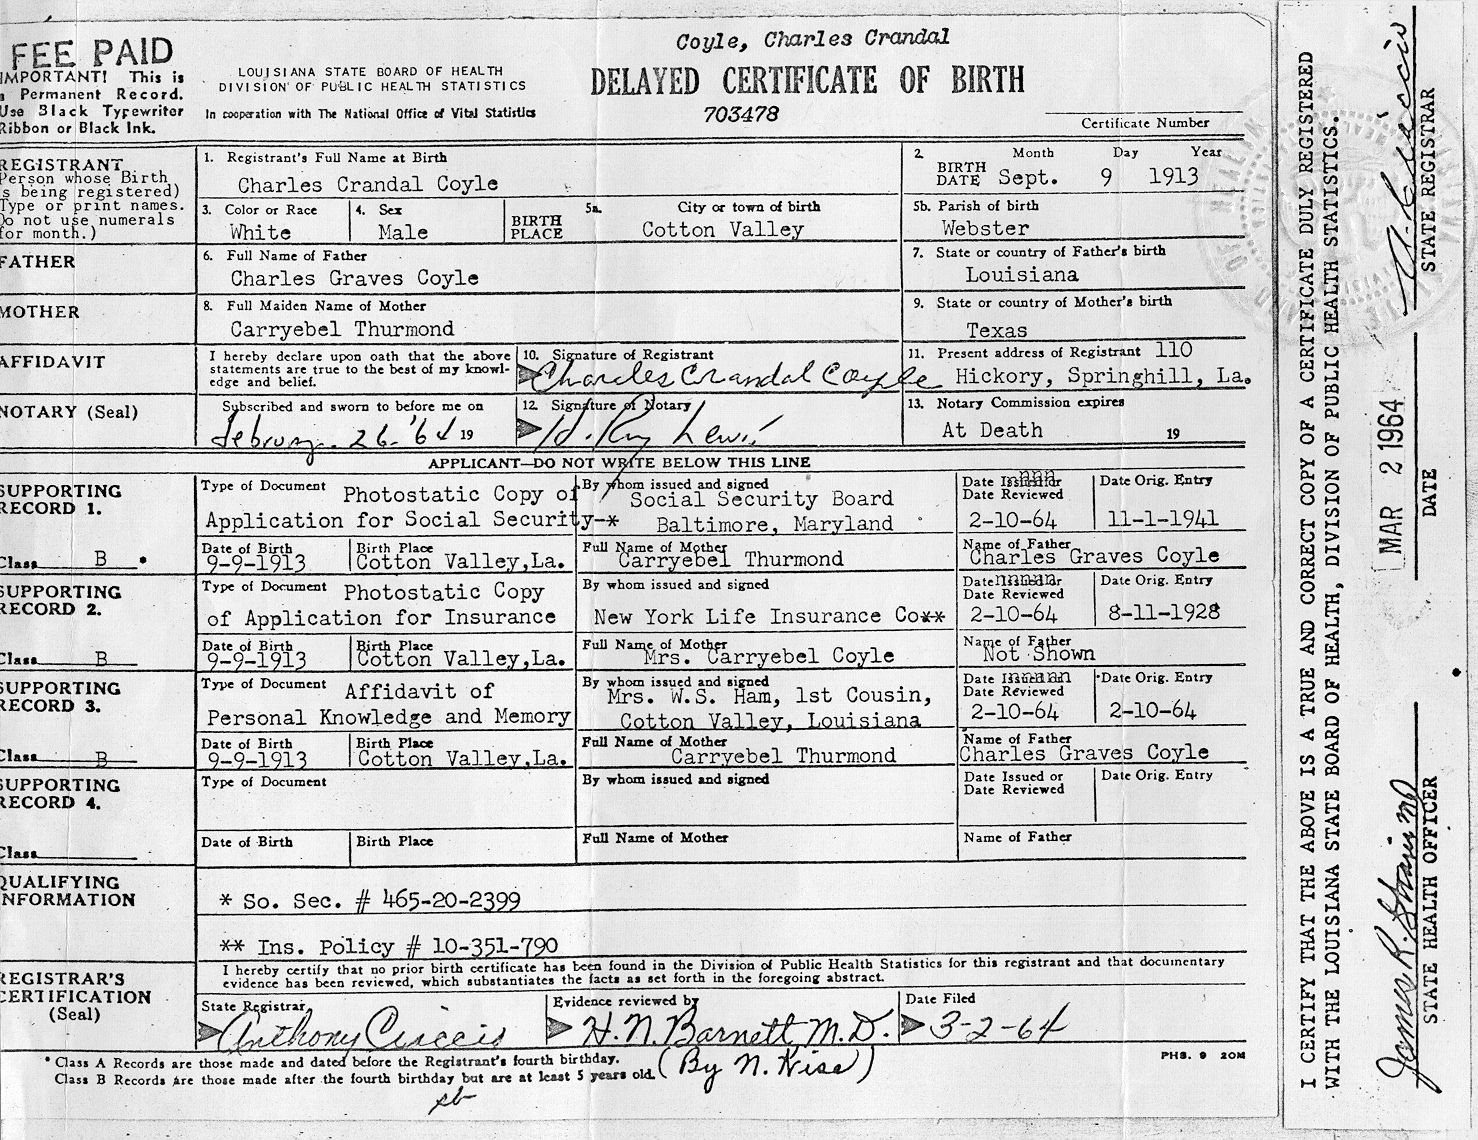 Coyle, Charles Crandal
FEE PAID
IMPORTANT! This is
a Permanent Record.
Use Black Typewriter
Ribbon or Black Ink.
LOUISIANA STATE BOARD OF HEALTH
DIVISION OF PUBLIC HEALTH STATISTICS
In cooperation with The National Office of Vital Statistics
DELAYED CERTIFICATE OF BIRTH
703478
Certificate Number
REGISTRANT
Person whose Birth
is being registered)
Type or print names.
Do not use numerals
for month.)
1. Registrant's Full Name at Birth
Charles Crandal Coyle
2. BIRTH DATE Month Day Year
Sept. 9 1913
3. Color or Race
White
4. Sex
Male
BIRTH PLACE
5a. City or town of birth
Cotton Valley
5b. Parish of birth
Webster
FATHER
6. Full Name of Father
Charles Graves Coyle
7. State or country of Father's birth
Louisiana
MOTHER
8. Full Maiden Name of Mother
Carryebel Thurmond
9. State or country of Mother's birth
Texas
AFFIDAVIT
I hereby declare upon oath that the above
statements are true to the best of my knowl-
edge and belief.
10. Signature of Registrant
Charles Crandal Coyle
11. Present address of Registrant 110
Hickory, Springhill, La.
NOTARY (Seal)
Subscribed and sworn to before me on
February 26-'64 19
12. Signature of Notary
H. Ray Lewis
13. Notary Commission expires
At Death 19
APPLICANT—DO NOT WRITE BELOW THIS LINE
SUPPORTING
RECORD 1.
Class B *
Type of Document Photostatic Copy of
Application for Social Security-*
By whom issued and signed
Social Security Board
Baltimore, Maryland
Date Reviewed
2-10-64
Date Orig. Entry
11-1-1941
Date of Birth
9-9-1913
Birth Place
Cotton Valley,La.
Full Name of Mother
Carryebel Thurmond
Name of Father
Charles Graves Coyle
SUPPORTING
RECORD 2.
Class B
Type of Document Photostatic Copy
of Application for Insurance
By whom issued and signed
New York Life Insurance Co**
Date Reviewed
2-10-64
Date Orig. Entry
8-11-1928
Date of Birth
9-9-1913
Birth Place
Cotton Valley,La.
Full Name of Mother
Mrs. Carryebel Coyle
Name of Father
Not Shown
SUPPORTING
RECORD 3.
Class B
Type of Document Affidavit of
Personal Knowledge and Memory
By whom issued and signed
Mrs. W.S. Ham, 1st Cousin,
Cotton Valley, Louisiana
Date Reviewed
2-10-64
Date Orig. Entry
2-10-64
Date of Birth
9-9-1913
Birth Place
Cotton Valley,La.
Full Name of Mother
Carryebel Thurmond
Name of Father
Charles Graves Coyle
SUPPORTING
RECORD 4.
Class
Type of Document
By whom issued and signed
Date Issued or
Date Reviewed
Date Orig. Entry
Date of Birth
Birth Place
Full Name of Mother
Name of Father
QUALIFYING
INFORMATION
* So. Sec. # 465-20-2399
** Ins. Policy # 10-351-790
REGISTRAR'S
CERTIFICATION
(Seal)
I hereby certify that no prior birth certificate has been found in the Division of Public Health Statistics for this registrant and that documentary
evidence has been reviewed, which substantiates the facts as set forth in the foregoing abstract.
State Registrar
Anthony Ciaccio
Evidence reviewed by
H. N. Barnett M.D.
(By N. Wise)
Date Filed
3-2-64
* Class A Records are those made and dated before the Registrant's fourth birthday.
Class B Records are those made after the fourth birthday but are at least 5 years old.
PHS. 9 20M
I CERTIFY THAT THE ABOVE IS A TRUE AND CORRECT COPY OF A CERTIFICATE DULY REGISTERED
WITH THE LOUISIANA STATE BOARD OF HEALTH, DIVISION OF PUBLIC HEALTH STATISTICS.
A. Ciaccio
STATE REGISTRAR
MAR 2 1964
DATE
STATE HEALTH OFFICER